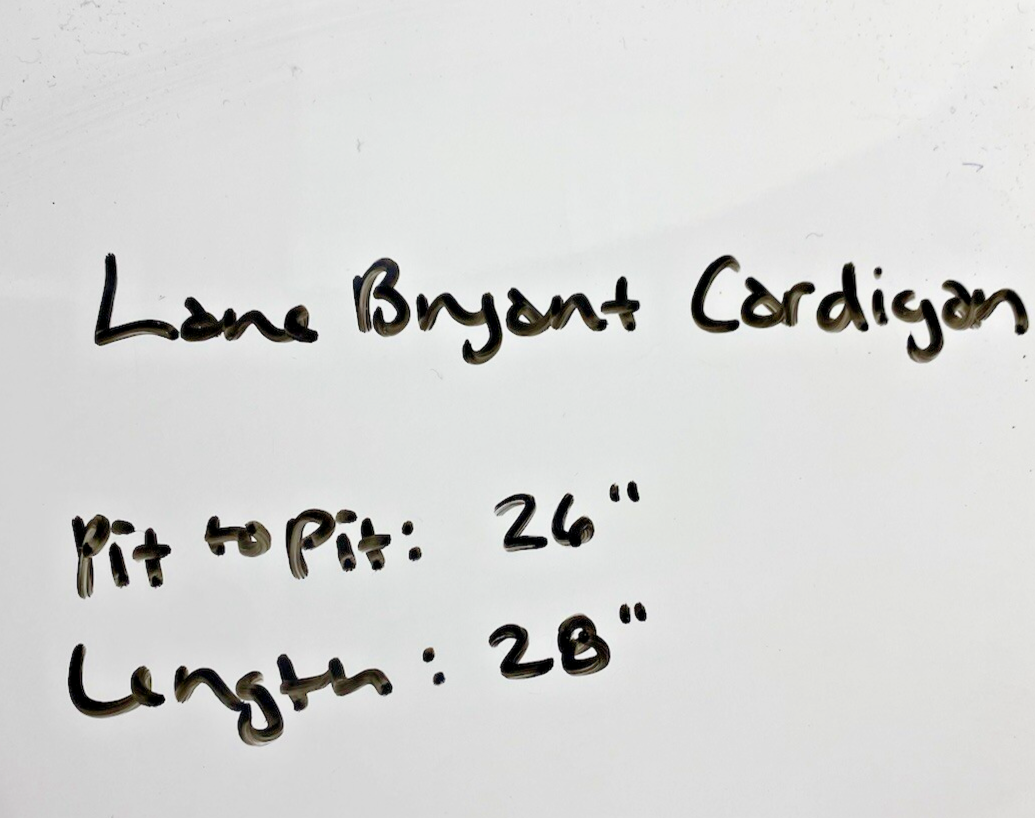 Lane Bryant Cardigan
Pit to Pit: 26"
Length: 28"